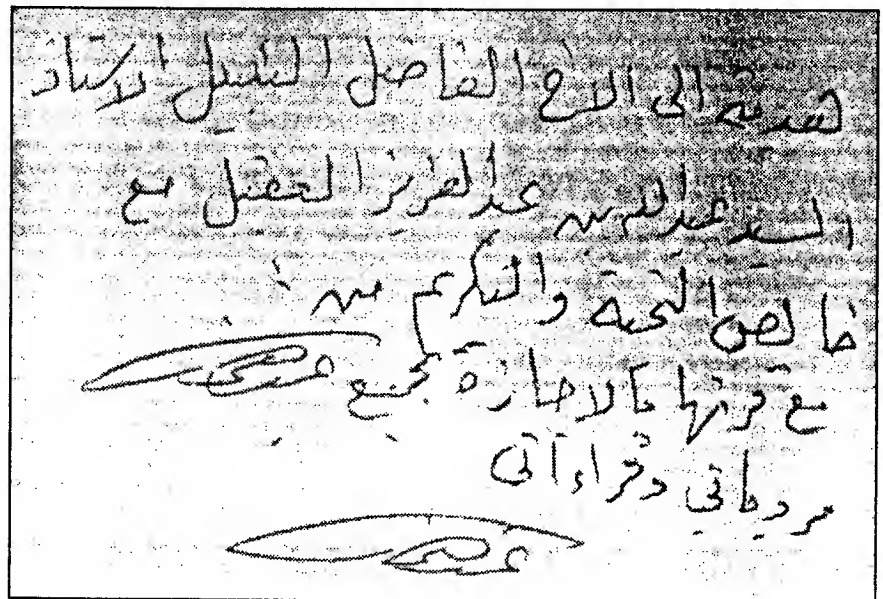 هدية الى الاخ الفاضل النبيل الاستاذ
السيد عبدالله بن عبدالعزيز العقيل مع
خالص التحية والتكريم من :
مع قرنها بالاجازة بجميع
مروياتي وقراءآتي